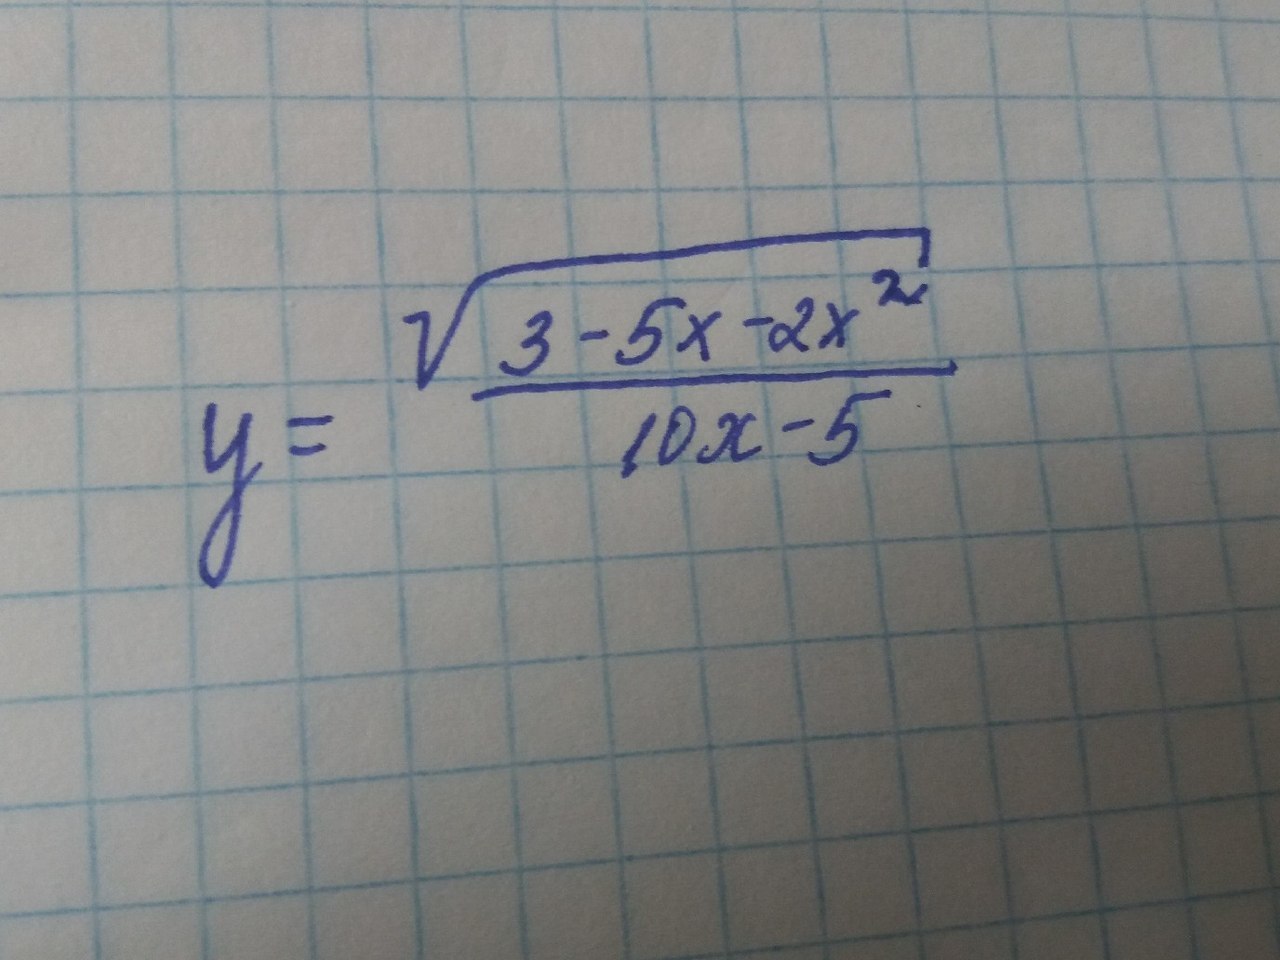 y = √(3 - 5x - 2x²) / (10x - 5)